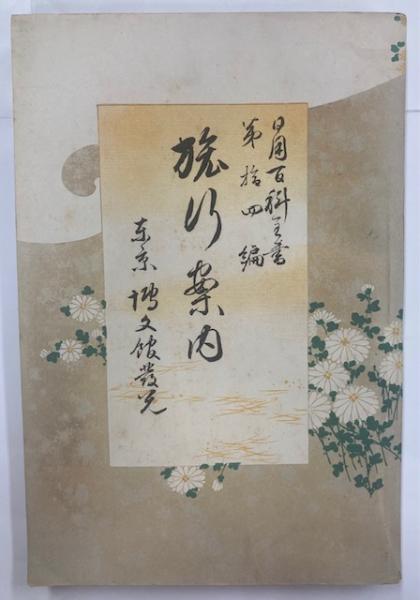 日用百科全書
第拾四編
旅行案内
東京博文館發兌